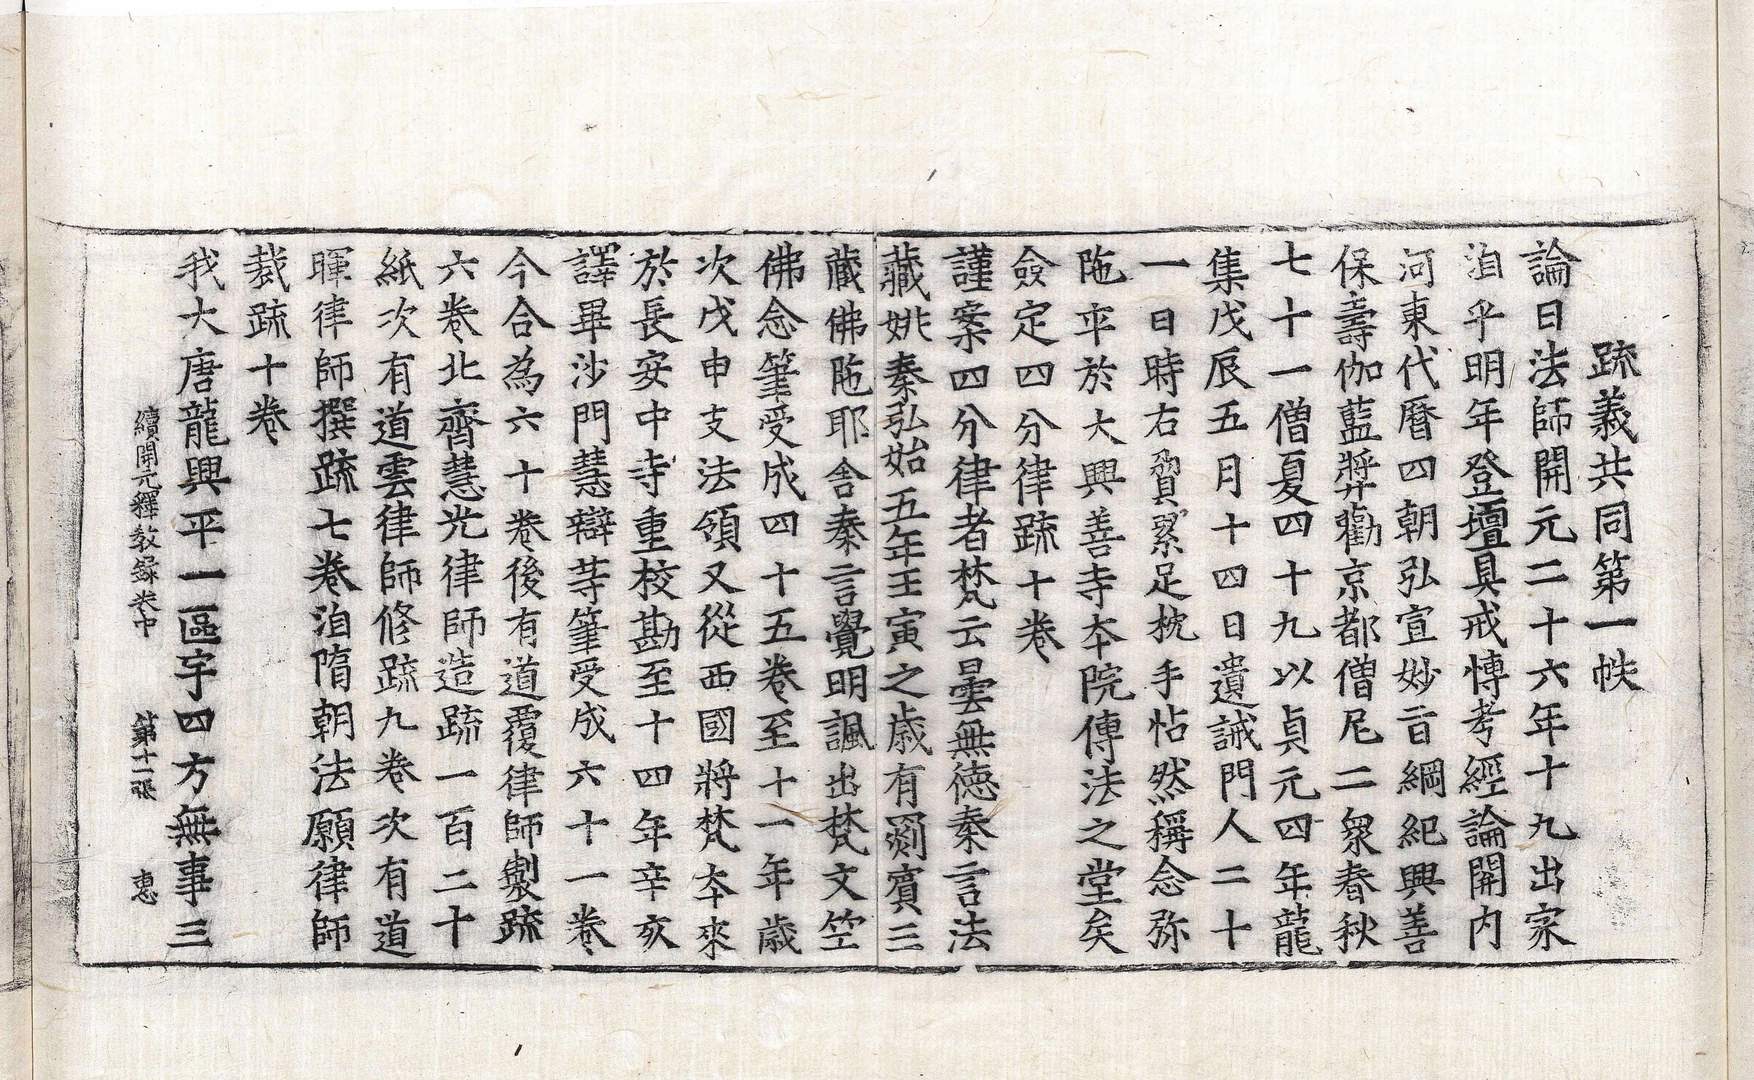 疏義共同第一帙
論曰法師開元二十六年十九出家
洎乎明年登壇具戒慱考經論開內
河東代曆四朝弘宣妙旨綱紀興善
保壽伽藍奬勸京都僧尼二衆春秋
七十一僧夏四十九以貞元四年龍
集戊辰五月十四日遺誡門人二十
一日時右脅累足枕手帖然稱念弥
陁卒於大興善寺夲院傳法之堂矣
僉定四分律疏十卷
謹案四分律者梵云曇無德秦言法
藏姚秦弘始五年壬寅之歲有罽賓三
藏佛陁耶舍秦言覺明諷出梵文竺
佛念筆受成四十五卷至十一年歲
次戊申支法領又從西國將梵夲來
於長安中寺重校勘至十四年辛亥
譯畢沙門慧辯等筆受成六十一卷
今合為六十卷後有道覆律師製疏
六卷北齊慧光律師造疏一百二十
紙次有道雲律師修疏九卷次有道
暉律師撰疏七卷洎隋朝法願律師
裁疏十卷
我大唐龍興平一區宇四方無事三
續開元釋教錄卷中 第十一張 惠